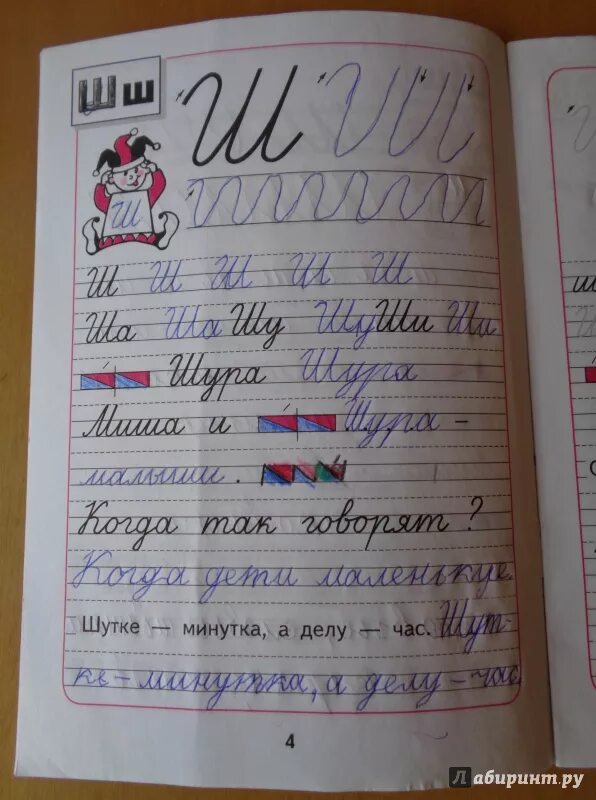 Ш ш
Ш
Ш
Ш Ш Ш Ш Ш
Ша Ша Шу Шу Ши Ши
Шура Шура
Миша и Шура -
малыши.
Когда так говорят?
Когда дети маленькие.
Шутке — минутка, а делу — час. Шут-
ке - минутка, а делу - час.
4
Лабиринт.ру